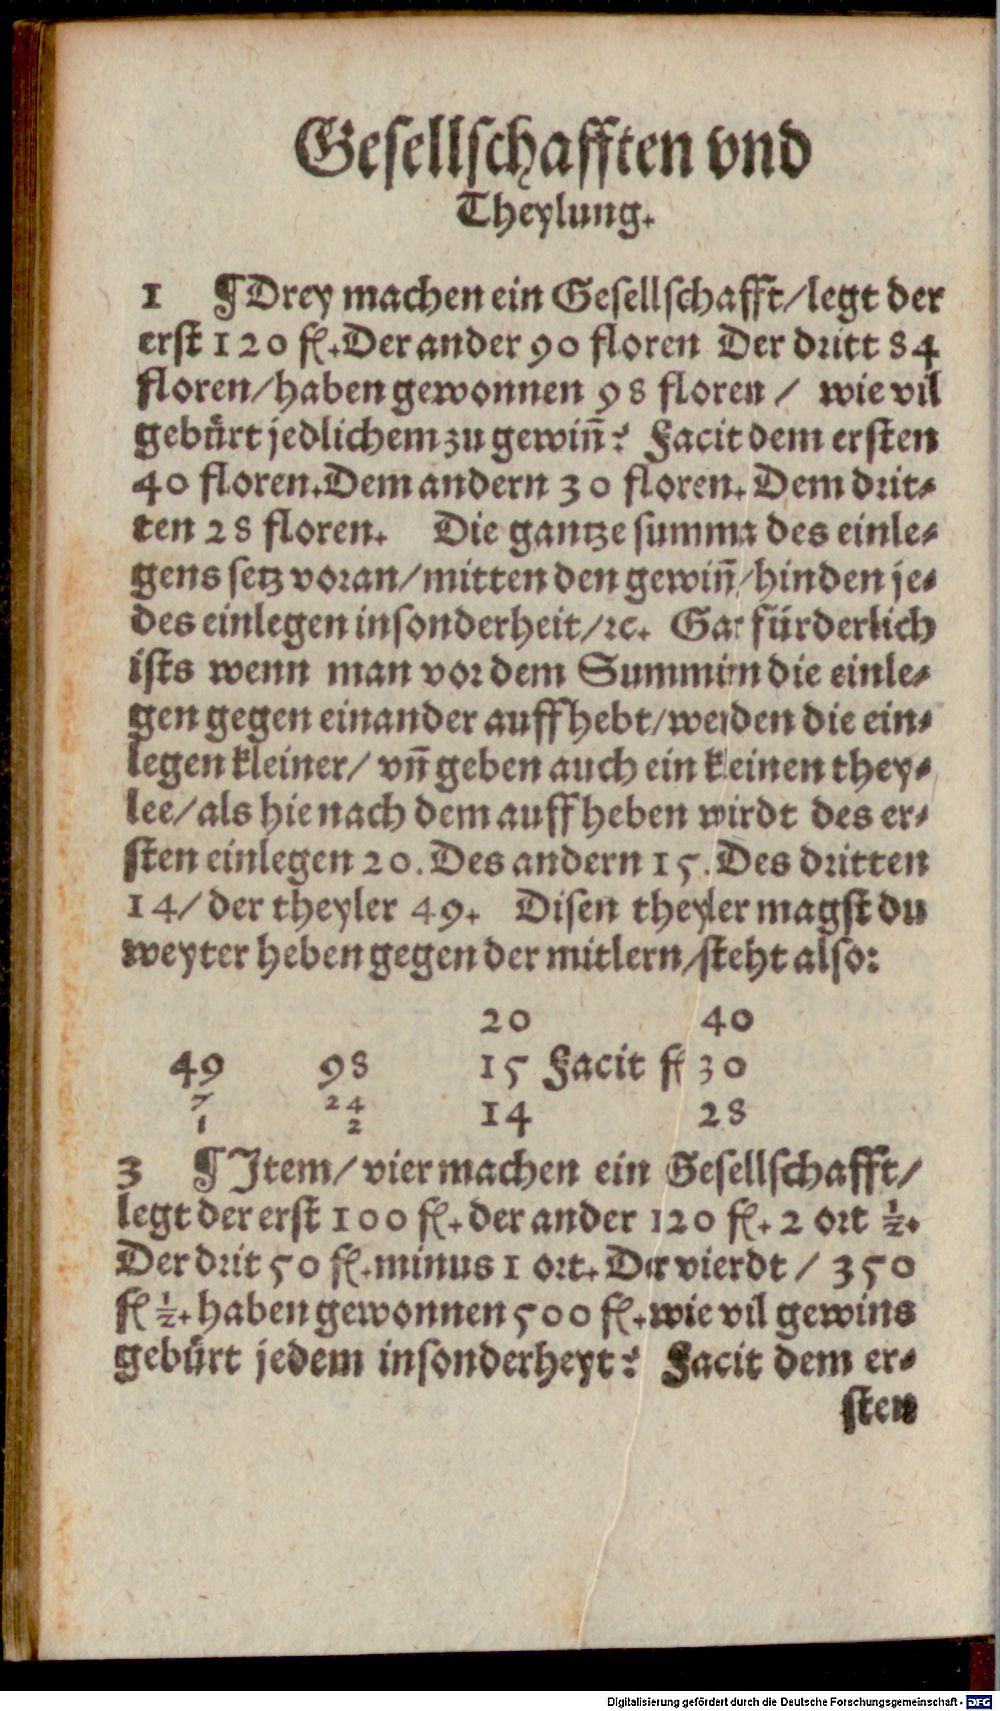 Gesellschafften vnd
Theylung.
1 ¶Drey machen ein Gesellschafft/legt der
erst 120 fl.Der ander 90 floren Der dritt 84
floren/haben gewonnen 98 floren / wie vil
gebürt jedlichem zu gewiñ? Facit dem ersten
40 floren.Dem andern 30 floren.Dem drit-
ten 28 floren. Die gantze summa des einle-
gens setz voran/mitten den gewiñ/hinden je-
des einlegen insonderheit/ꝛc. Gar fürderlich
ists wenn man vor dem Summirn die einle-
gen gegen einander auff hebt/werden die ein-
legen kleiner/ vñ geben auch ein kleinen they-
lee/als hie nach dem auff heben wirdt des er-
sten einlegen 20.Des andern 15.Des dritten
14/ der theyler 49. Disen theyler magst du
weyter heben gegen der mitlern/steht also:
20 40
49 98 15 Facit fl 30
7 24 14 28
1 2
3 ¶Item/vier machen ein Gesellschafft/
legt der erst 100 fl.der ander 120 fl.2 ort ½.
Der drit 50 fl.minus 1 ort.Der vierdt / 350
fl ½.haben gewonnen 500 fl.wie vil gewins
gebürt jedem insonderheyt? Facit dem er-
sten
Digitalisierung gefördert durch die Deutsche Forschungsgemeinschaft - DFG